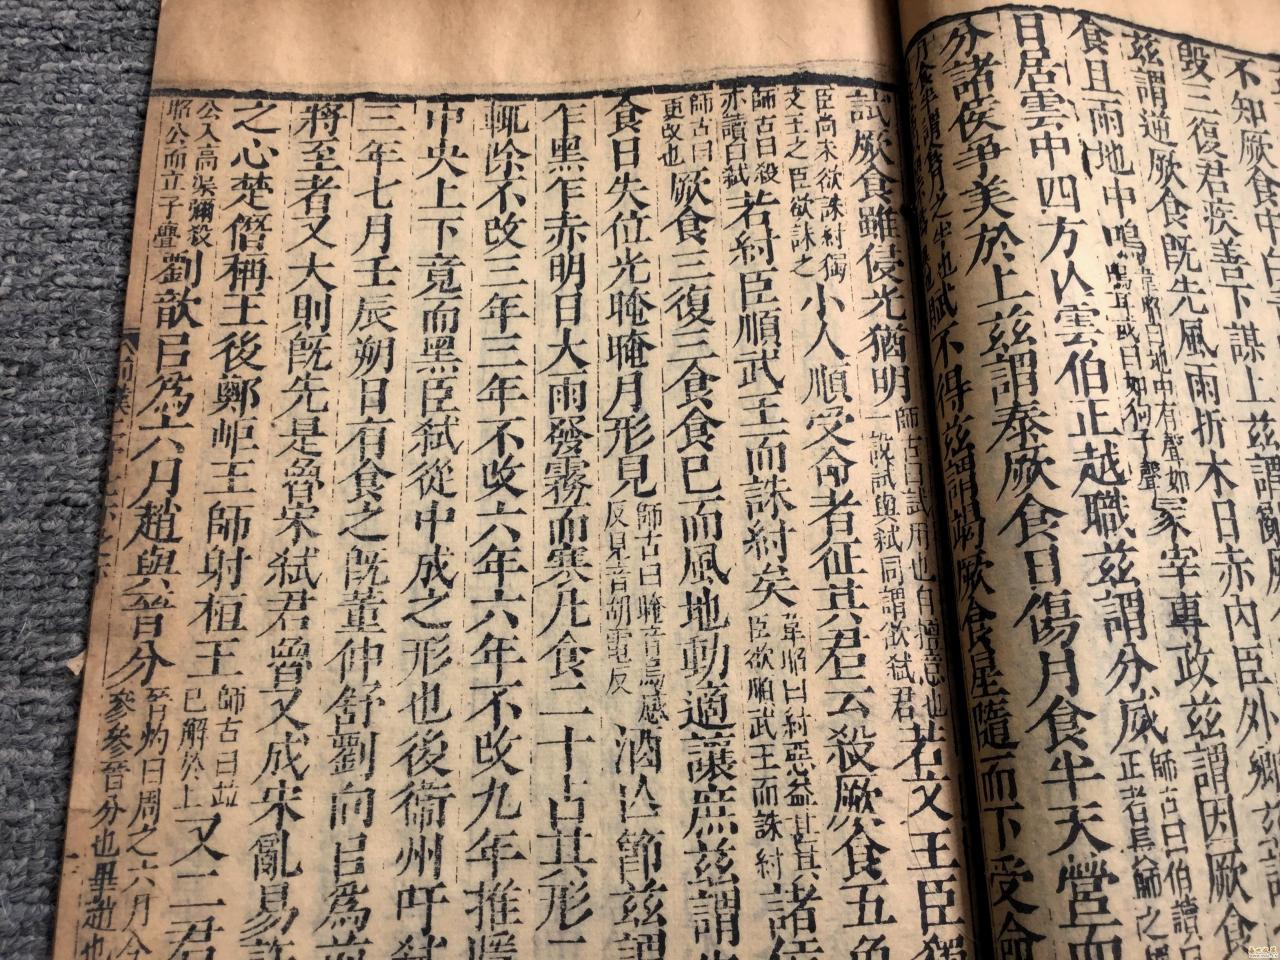 不知厥食中白
毀三復君疾善下謀上茲謂亂厥
茲謂逆厥食既先風雨折木日赤內臣外鄉茲
食且雨地中鳴韋昭曰地中有聲如鳴耳或曰如狗子聲冢宰專政茲謂因厥食
日居雲中四方亾雲伯正越職茲謂分威師古曰伯讀正者長帥之
分諸侯爭美於上茲謂泰厥食日傷月食半天營而
賦不得茲謂竭厥食星隨而下受命
試厥食雖侵光猶明師古曰試用也自擅意也一說試與弒同謂欲弒君若文王臣獨
臣尚未欲誅紂獨文王之臣欲誅之小人順受命者征其君云殺厥食五色
師古曰殺亦讀曰弒若紂臣順武王而誅紂矣韋昭曰紂惡益甚其臣欲順武王而誅紂諸侯
師古曰更改也厥食三復三食食已而風地動適讓庶茲謂
食日失位光晻晻月形見師古曰晻音烏感反見音胡電反酒亾節茲謂
乍黑乍赤明日大雨發霧而寒凡食二十占其形二
輒除不改三年三年不改六年六年不改九年推隱
中央上下竟而黑臣弒從中成之形也後衞州吁弒
三年七月壬辰朔日有食之既董仲舒劉向㠯為前
將至者又大則既先是魯宋弒君魯又成宋亂易許
之心楚僭稱王後鄭岠王師射桓王師古曰並已解於上又二君
公入高渠彌殺昭公而立子亹劉歆㠯為六月趙與晉分晉灼曰周之六月今參參晉分也畢趙也